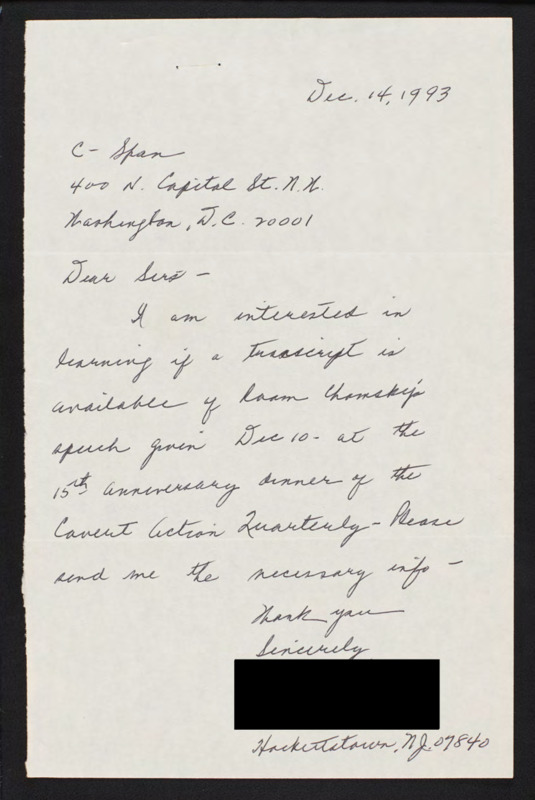 Dec. 14, 1993
C- Span
400 N. Capital St. N.W.
Washington, D.C. 20001
Dear Sirs -
I am interested in
learning if a transcript is
available of Noam Chomsky's
speech given Dec 10 - at the
15th anniversary dinner of the
Covert Action Quarterly - Please
send me the necessary info -
Thank you
Sincerely
Hackettstown, NJ. 07840